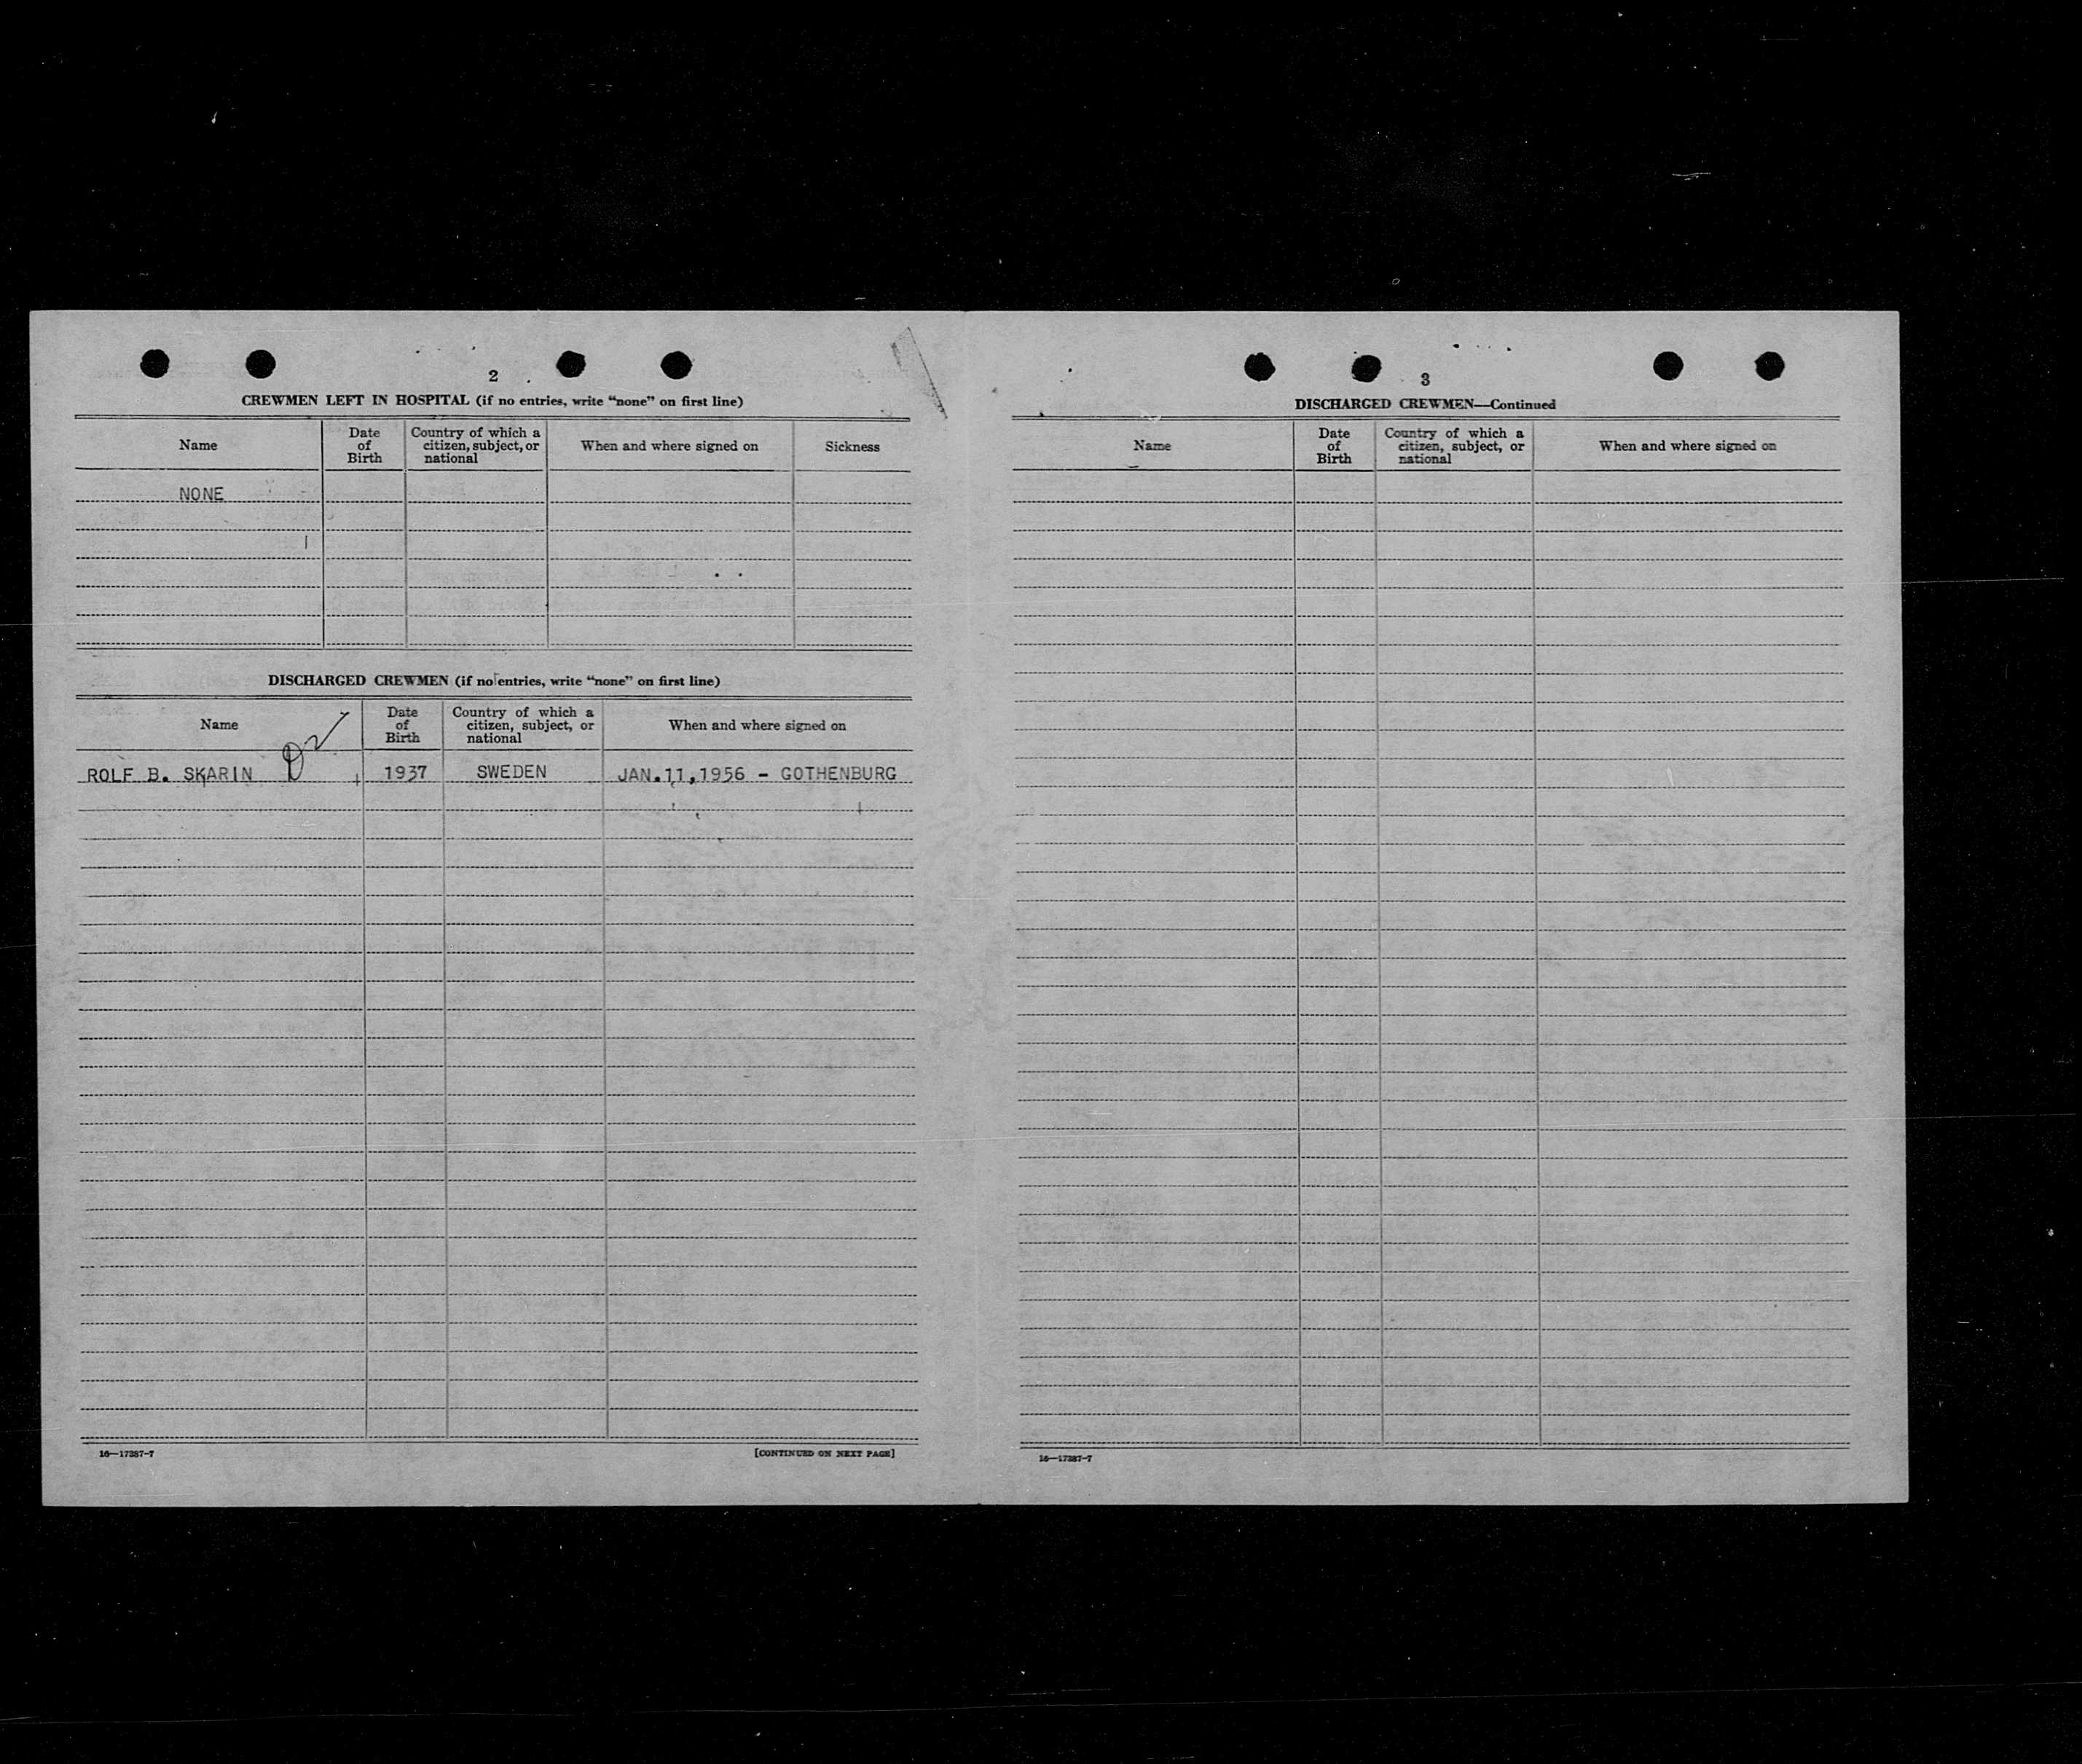 2
CREWMEN LEFT IN HOSPITAL (if no entries, write “none” on first line)
Name
Date of Birth
Country of which a citizen, subject, or national
When and where signed on
Sickness
NONE
DISCHARGED CREWMEN (if no entries, write “none” on first line)
Name
Date of Birth
Country of which a citizen, subject, or national
When and where signed on
ROLF B. SKARIN 1937 SWEDEN JAN.11,1956 - GOTHENBURG
16—17387-7
[CONTINUED ON NEXT PAGE]
3
DISCHARGED CREWMEN—Continued
Name
Date of Birth
Country of which a citizen, subject, or national
When and where signed on
16—17387-7